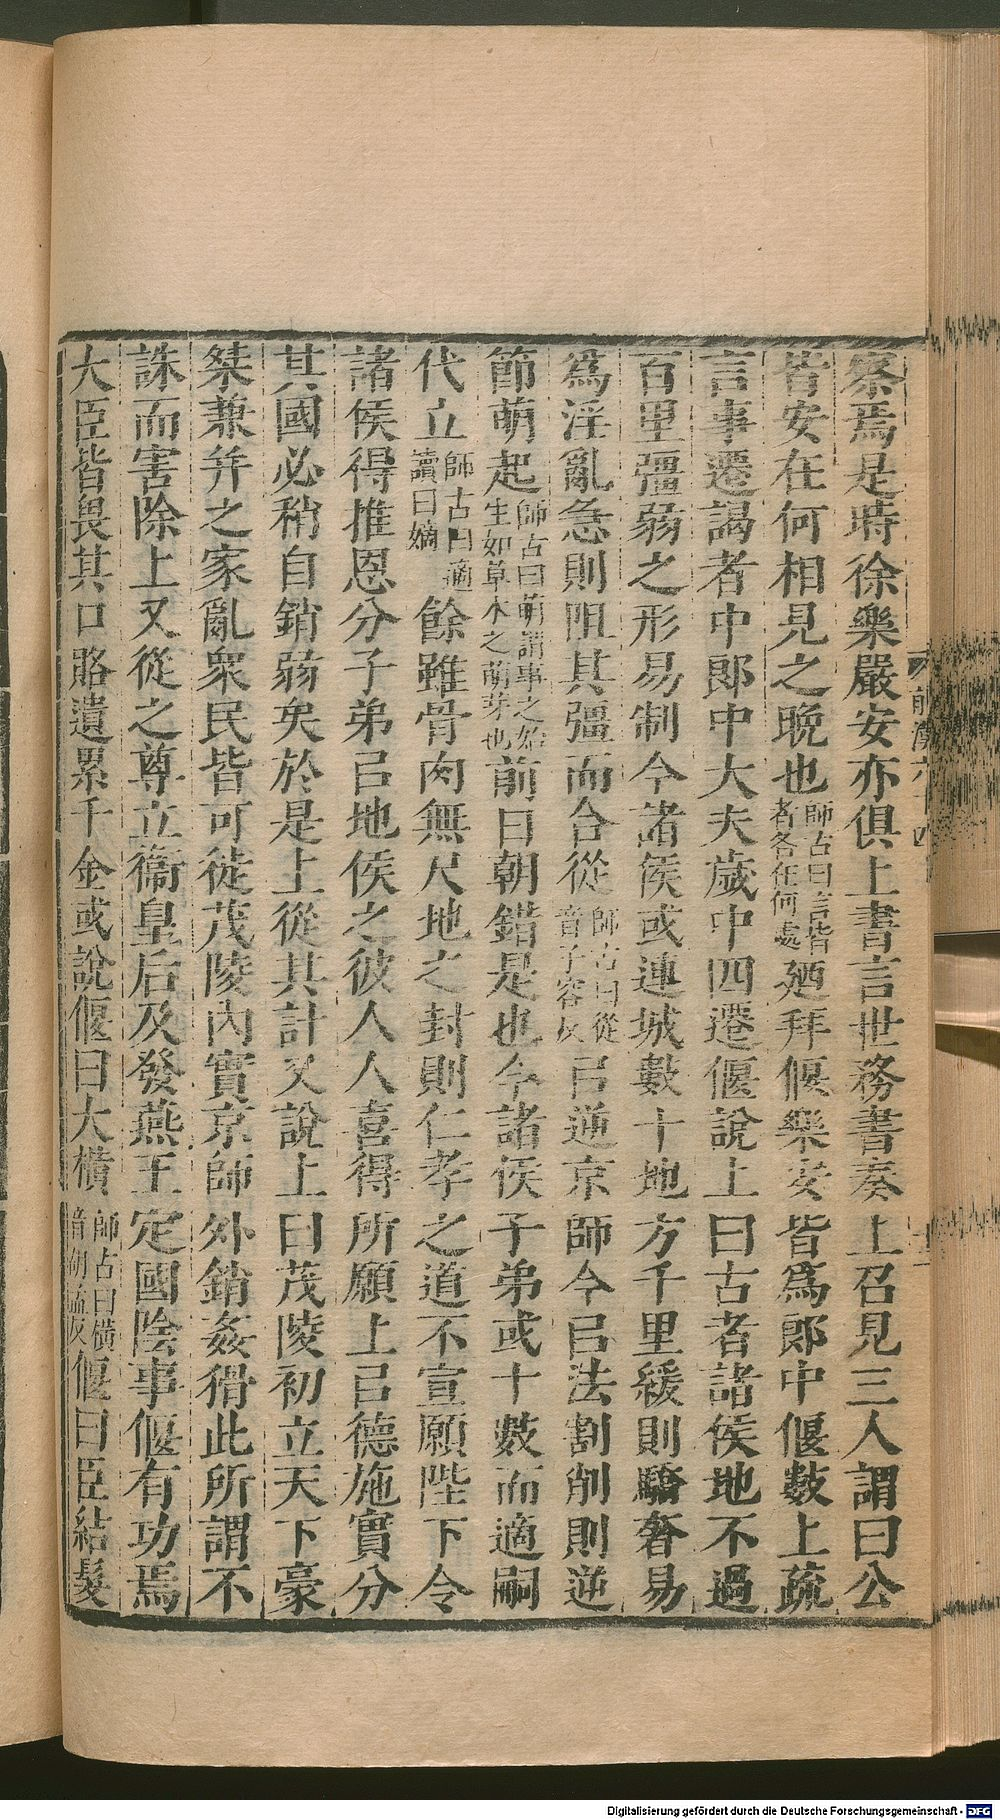 察焉是時徐樂嚴安亦俱上書言世務書奏上召見三人謂曰公
皆安在何相見之晚也師古曰言皆者各在何處廼拜偃樂安皆爲郎中偃數上疏
言事遷謁者中郎中大夫歲中四遷偃說上曰古者諸侯地不過
百里彊弱之形易制今諸侯或連城數十地方千里緩則驕奢易
爲淫亂急則阻其彊而合從師古曰從音子容反㠯逆京師今㠯法割削則逆
節萌起師古曰萌謂事之始生如草木之萌芽也前日朝錯是也今諸侯子弟或十數而適嗣
代立師古曰適讀曰嫡餘雖骨肉無尺地之封則仁孝之道不宣願陛下令
諸侯得推恩分子弟㠯地侯之彼人人喜得所願上㠯德施實分
其國必稍自銷弱矣於是上從其計又說上曰茂陵初立天下豪
桀兼幷之家亂衆民皆可徙茂陵內實京師外銷姦猾此所謂不
誅而害除上又從之尊立衞皇后及發燕王定國陰事偃有功焉
大臣皆畏其口賂遺累千金或說偃曰大橫師古曰橫音胡孟反偃曰臣結髮
前漢六十四